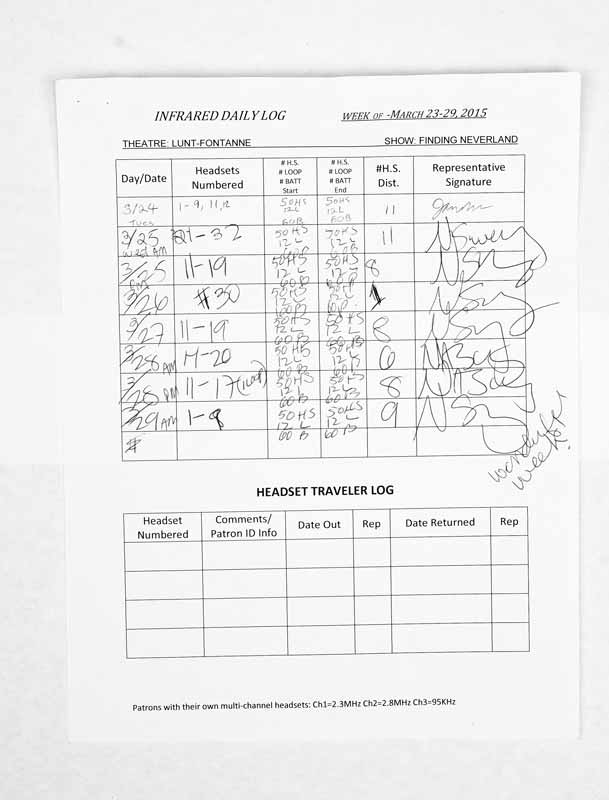 INFRARED DAILY LOG WEEK OF -MARCH 23-29, 2015
THEATRE: LUNT-FONTANNE SHOW: FINDING NEVERLAND
Day/Date Headsets Numbered # H.S. # LOOP # BATT Start # H.S. # LOOP # BATT End #H.S. Dist. Representative Signature
3/24 Tues 1-9, 11,12 50HS 12L 60B 50HS 12L 60B 11
3/25 Wed AM 21-32 50HS 12L 60B 50HS 12L 60B 11
3/25 PM 11-19 50HS 12L 60B 50HS 12L 60B 8
3/26 #30 50HS 12L 60B 50HS 12L 60B 1
3/27 11-19 50HS 12L 60B 50HS 12L 60B 8
3/28 AM 14-20 50HS 12L 60B 50HS 12L 60B 6
3/28 PM 11-17 50HS 12L 60B 50HS 12L 60B 8
3/29 AM 1-9 50HS 12L 60B 50HS 12L 60B 9
#
HEADSET TRAVELER LOG
Headset Numbered Comments/ Patron ID Info Date Out Rep Date Returned Rep
Patrons with their own multi-channel headsets: Ch1=2.3MHz Ch2=2.8MHz Ch3=95KHz